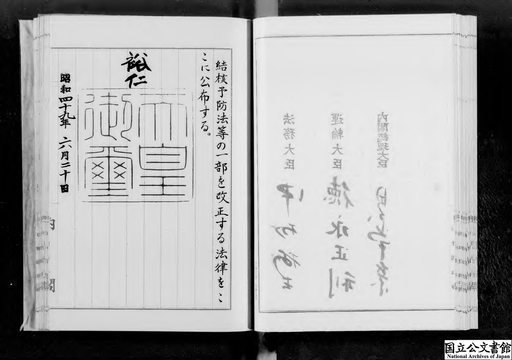 内閣総理大臣
運輸大臣
徳永正利
法務大臣
結核予防法等の一部を改正する法律をこ
こに公布する。
裕仁
天皇
御璽
昭和四十九年六月二十日
内閣
国立公文書館
National Archives of Japan